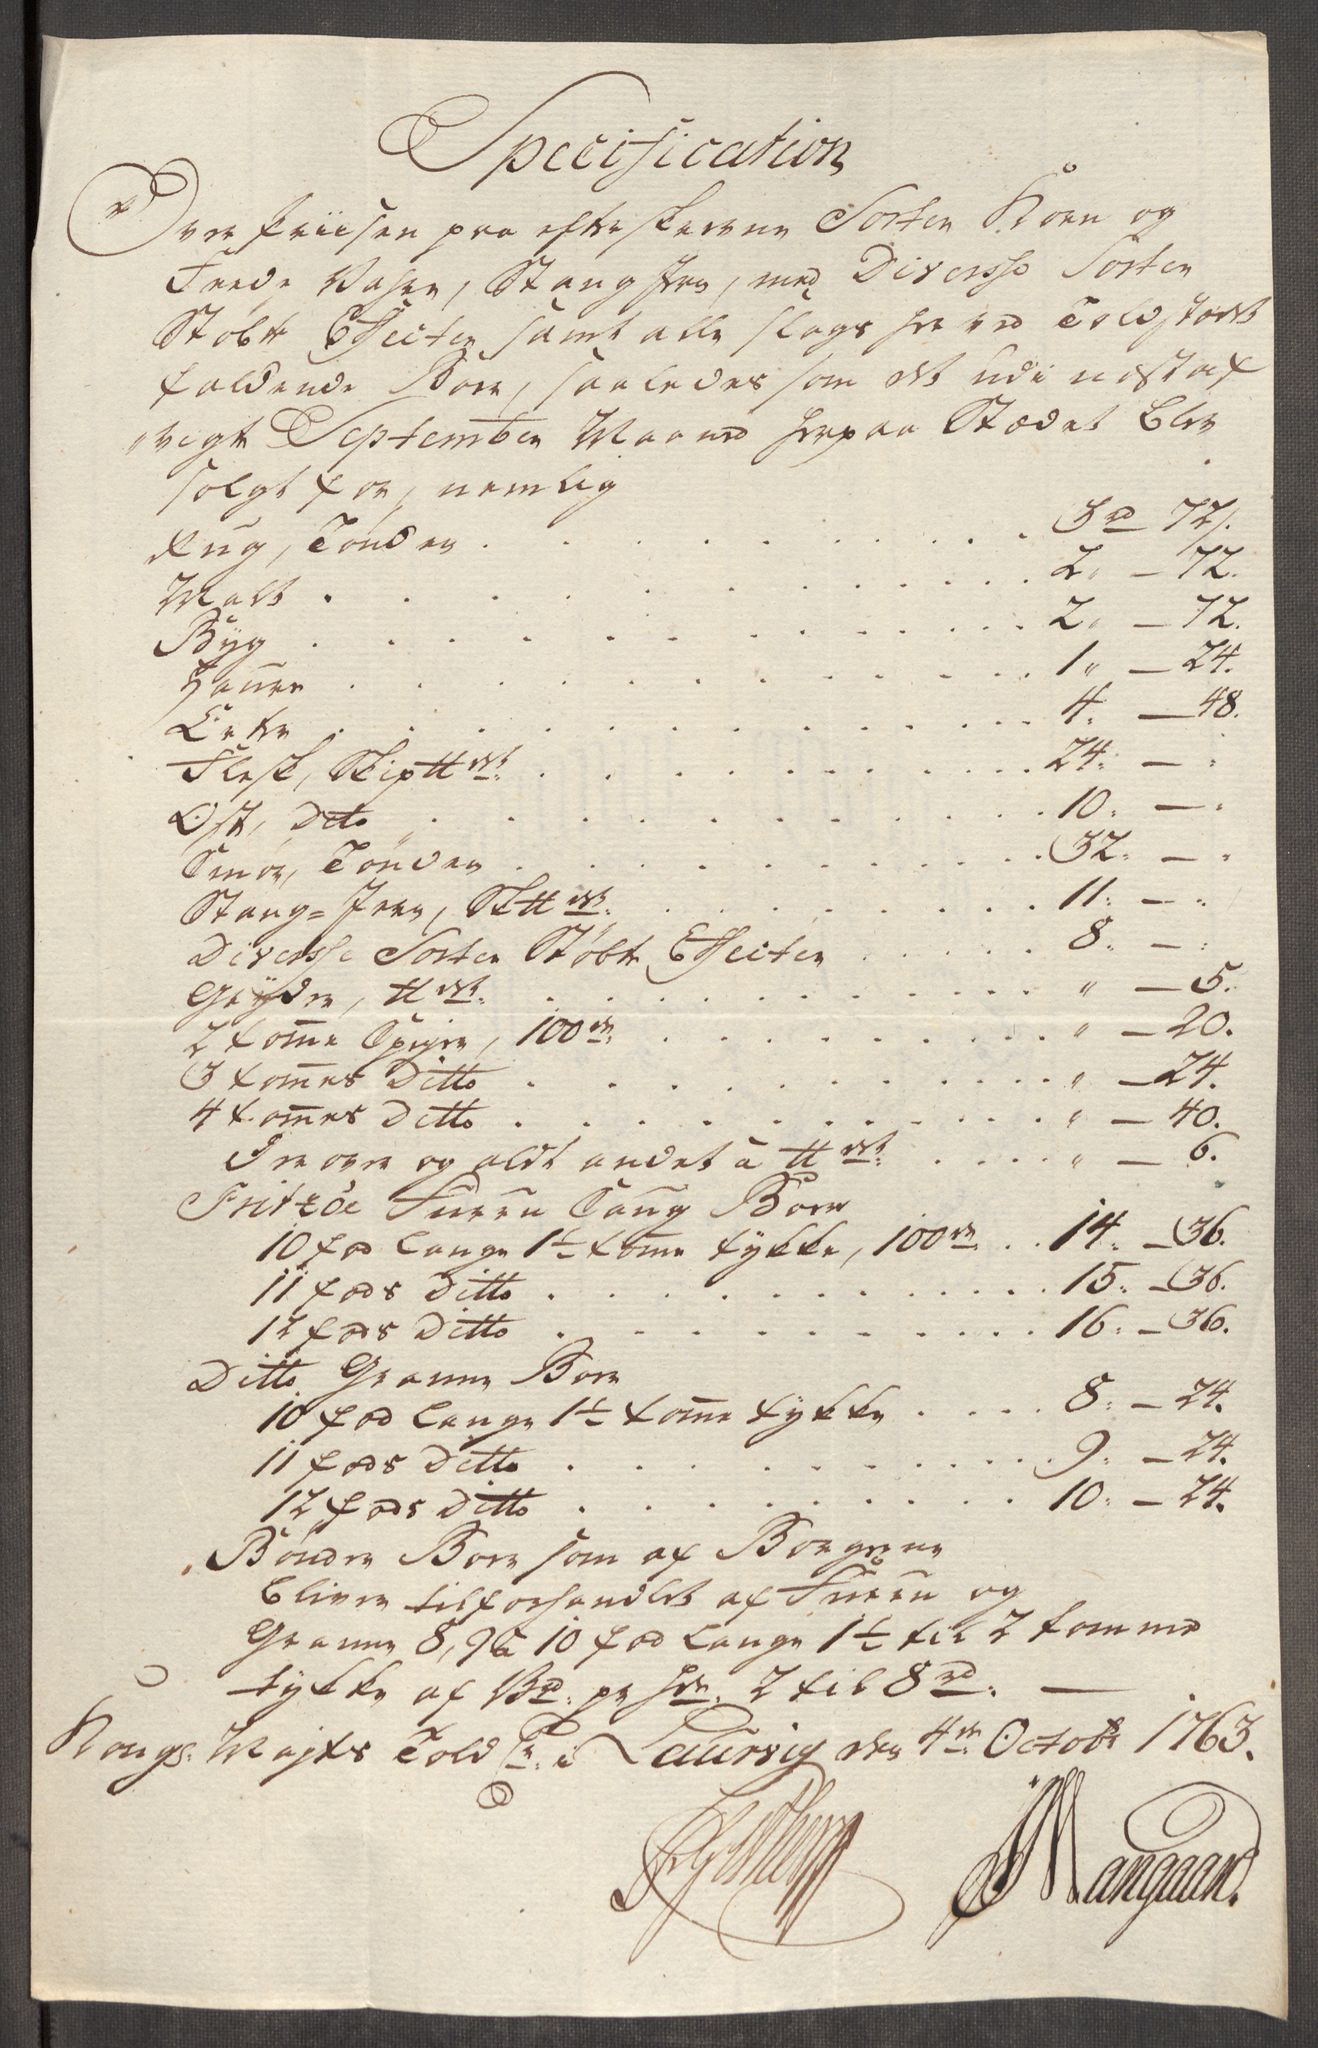 Specification
Over Priisen paa efterskrevne Sorter Korn og
Feede Vahre, Stang Jern, med Diversse Sorter
Støbte Effecter samt alle slags her ved Toldstædet
faldende Borde, saaledes som det udi nestaf
vigte September Maaned her paa Stædet blev
solgt for, nemlig
Rug, Tønden . . . 3 rd 72 s.
Malt . . . 2„ — 72.
Byg . . . 2„ — 72.
Hauer . . . 1„ — 24.
Erter . . . 4„ — 48.
Flesk, Skip℔det . . . 24: — „
Ost, Dito . . . 10: — „
Smør, Tønden . . . 32: — „
Stang=Jern, Sk℔det . . . 11: — „
Diversse Sorter Støbte Effecter . . . 8: — „
Gryder, ℔det . . . „ — 5.
2 tom̄e Spiger, 100de . . . „ — 20.
3 tom̄es Ditto . . . „ — 24.
4 tom̄es Ditto . . . „ — 40.
og aldt andet à ℔det . . . „ — 6.
Fritzøe Furru Saug Borde
10 fod lange 1½ tom̄e tykke, 100de . . 14: — 36.
11 fods Ditto . . . 15: — 36.
12 fods Ditto . . . 16: — 36.
Ditto Granne Borde
10 fod lange 1½ tom̄e tykke . . . 8: — 24.
11 fods Ditto . . . 9: — 24.
12 fods Ditto . . . 10: — 24.
Bønder Borde som af Borgerne
bliver tilforhandlet af Furru og
Granne 8, 9 à 10 fod lange 1½ til 2 tomme
tykke af pr 2 til 8 rd. —
Kongl: Mayts Told i Laurvig den 4de Octobr 1763.
Mangaard.